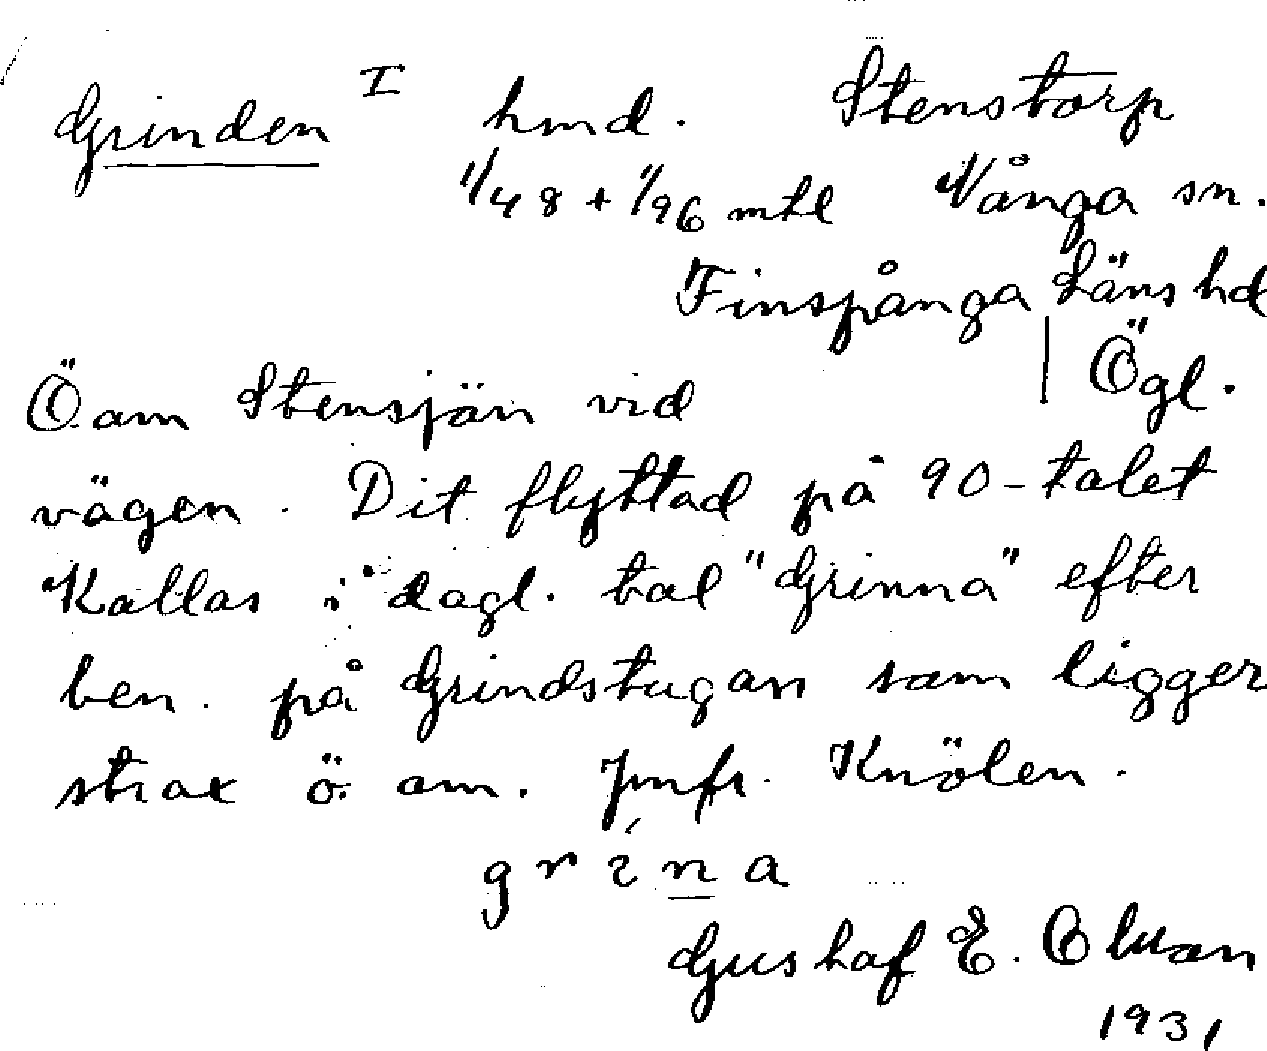 Grinden I hmd. Stenstorp
1/48 + 1/96 mtl Vånga sn.
Finspånga Läns hd
Ögl.
Ö om Stensjön vid
vägen. Dit flyttad på 90-talet
Kallas i dagl. tal "Grinna" efter
ben. på Grindstugan som ligger
strax ö. om. Jmfr. Knölen.
grína
Gustaf E.
1931